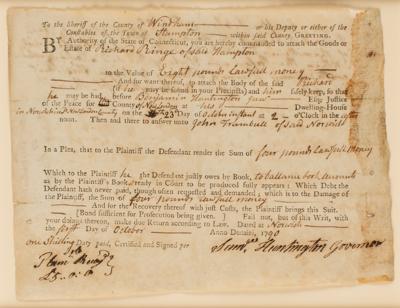 To the Sheriff of the County of Windham his Deputy or either of the
Constables of the Town of Hampton within said County GREETING.
BY Authority of the State of Connecticut, you are hereby commanded to attach the Goods or
Estate of Richard of said Hampton
to the Value of Eight pounds Lawfull money
And for want thereof, to attach the Body of the said Richard
(if he may be found in your Precincts) and him safely keep, so that
he may be had, before Benjamin Huntington Esq; Justice
of the Peace for County of at his Dwelling-House
in Norwich on the 23 Day of October Instant at 2 o'Clock in the after
noon Then and there to answer unto John Trumbull of said Norwich
In a Plea, that to the Plaintiff the Defendant render the Sum of four pounds Lawfull Money
Which to the Plaintiff he the Defendant justly owes by Book, to ballance book accounts
as by the Plaintiff's Book ready in Court to be produced fully appears; Which Debt the
Defendant hath never paid, though often requested and demanded; which is to the Damage of
the Plaintiff, the Sum of four pounds Lawfull money
And for the Recovery thereof with just Costs, the Plaintiff brings this Suit.
[Bond sufficient for Prosecution being given. Fail not, but of this Writ, with
your doings thereon, make due Return according to Law. Dated at Norwich
the first Day of October Anno Domini, 1790
one Shilling Duty paid, Certified and Signed per Sam.ll Huntington Governor
£5.0.0